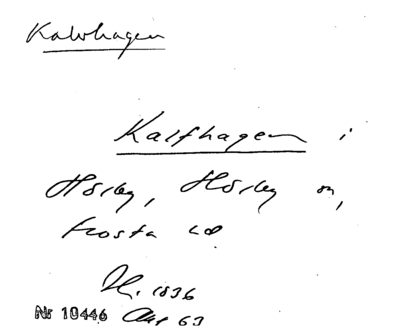 Kalvhagen
Kalfhagen i
Hörby, Hörby sn,
Frosta hd
H. 1836
Nr 10446 Akt 63